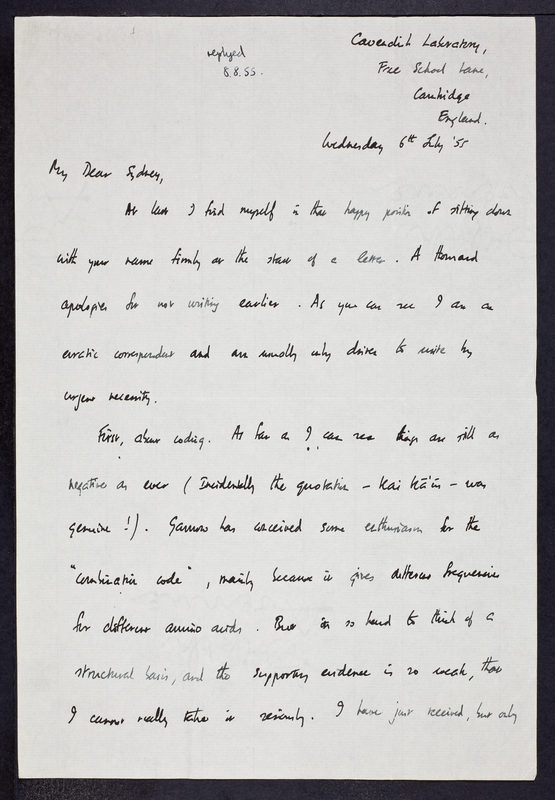 replyed
8.8.55.
Cavendish Laboratory,
Free School Lane,
Cambridge
England.
Wednesday 6th July '55
My Dear Sydney,
At last I find myself in that happy position of sitting down
with your name firmly at the start of a letter. A thousand
apologies for not writing earlier. As you can see I am an
erratic correspondent and am usually only driven to write by
urgent necessity.
First, about coding. As far as I can see things are still as
negative as ever (Incidentally the quotation - Kai Kā'ūs - was
genuine!). Gamow has conceived some enthusiasm for the
"combination code", mainly because it gives different frequencies
for different amino acids. But it is so hard to think of a
structural basis, and the supporting evidence is so weak, that
I cannot really take it seriously. I have just received, but only